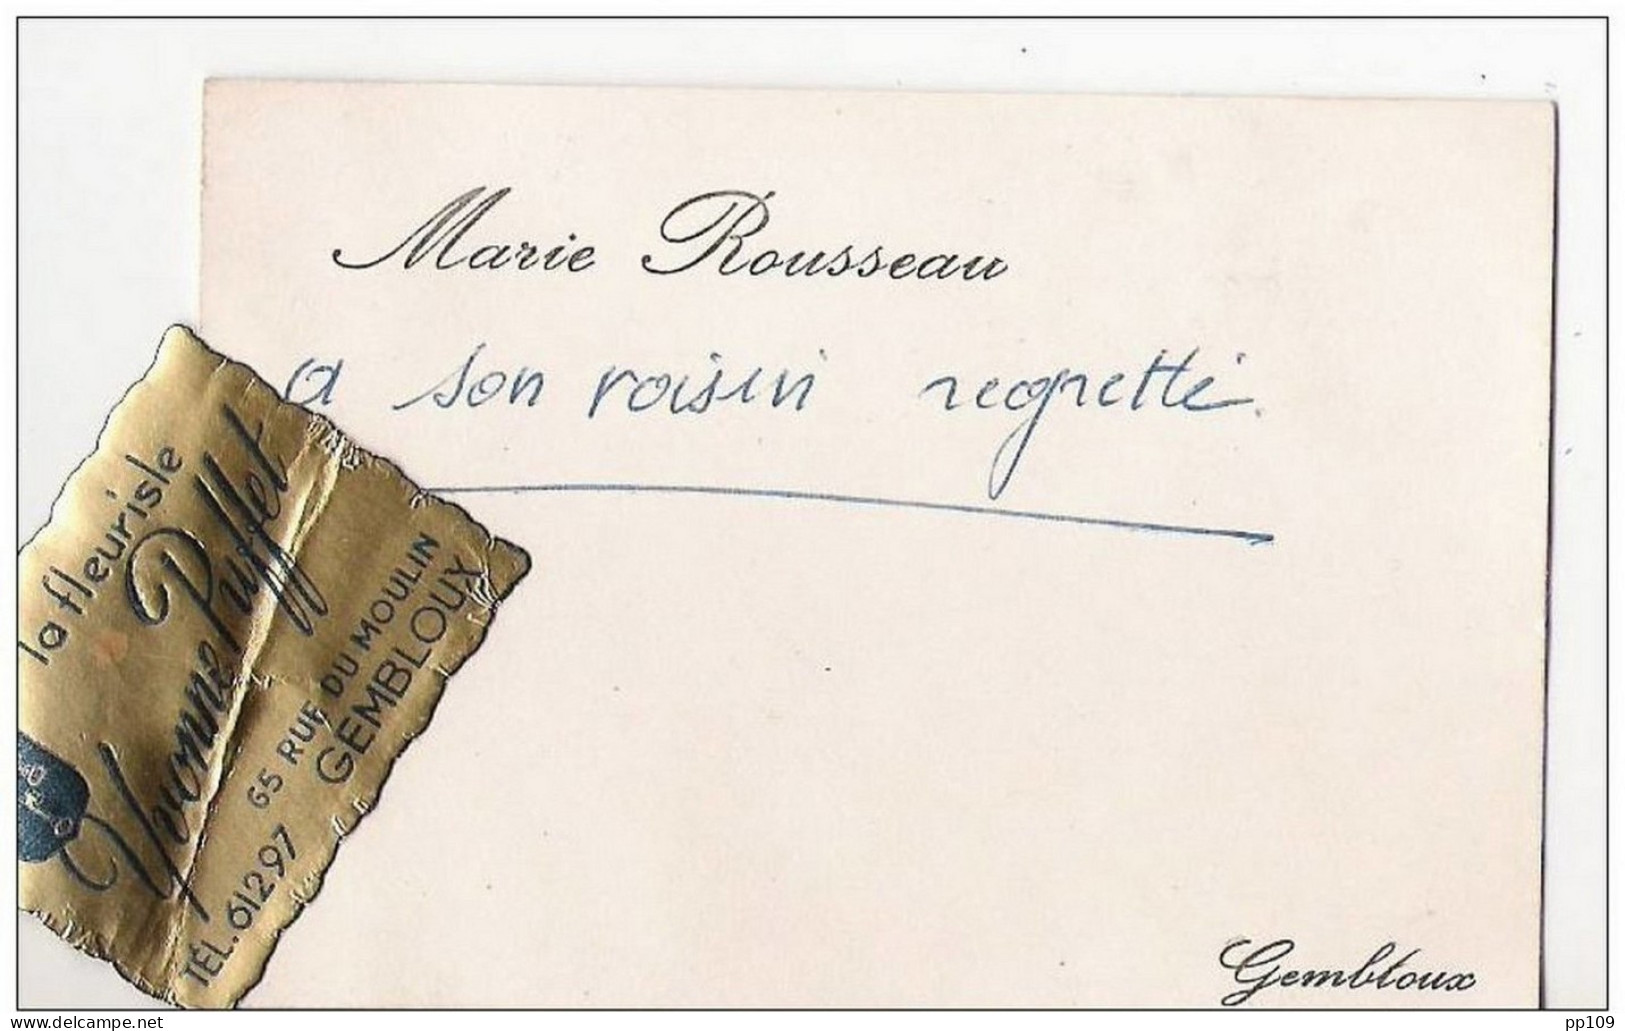 Marie Rousseau
a son voisin regretté.
la fleuriste
Yvonne Puffet
65 RUE DU MOULIN
GEMBLOUX
TÉL. 61297
Gembloux
pp109
www.delcampe.net